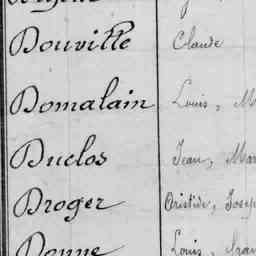 Douville Claude
Domalain Louis, M
Duclos Jean, Mar
Droger Aristide, Josep
Donne Louis,